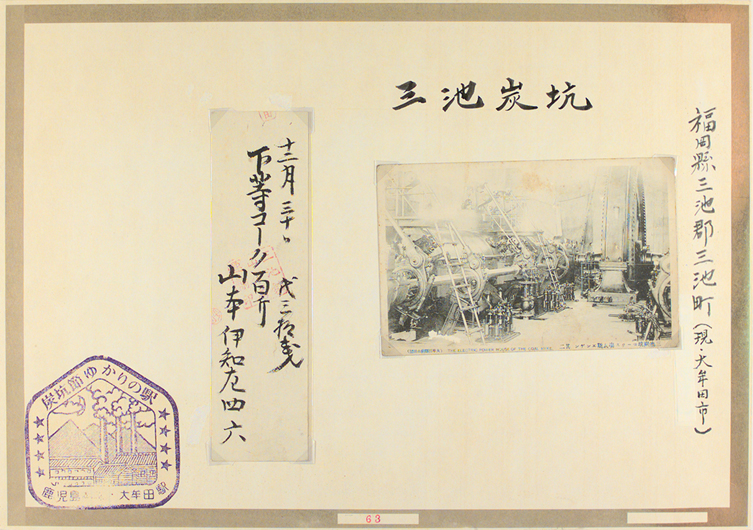 三池炭坑
福岡縣三池郡三池町(現・大牟田市)
十二月三十日
下等コークス百斤
代三拾戔
山本伊知左四六
THE ELECTRIC POWER HOUSE OF THE COAL MINE
炭坑節ゆかりの駅
鹿児島本線・大牟田駅
63